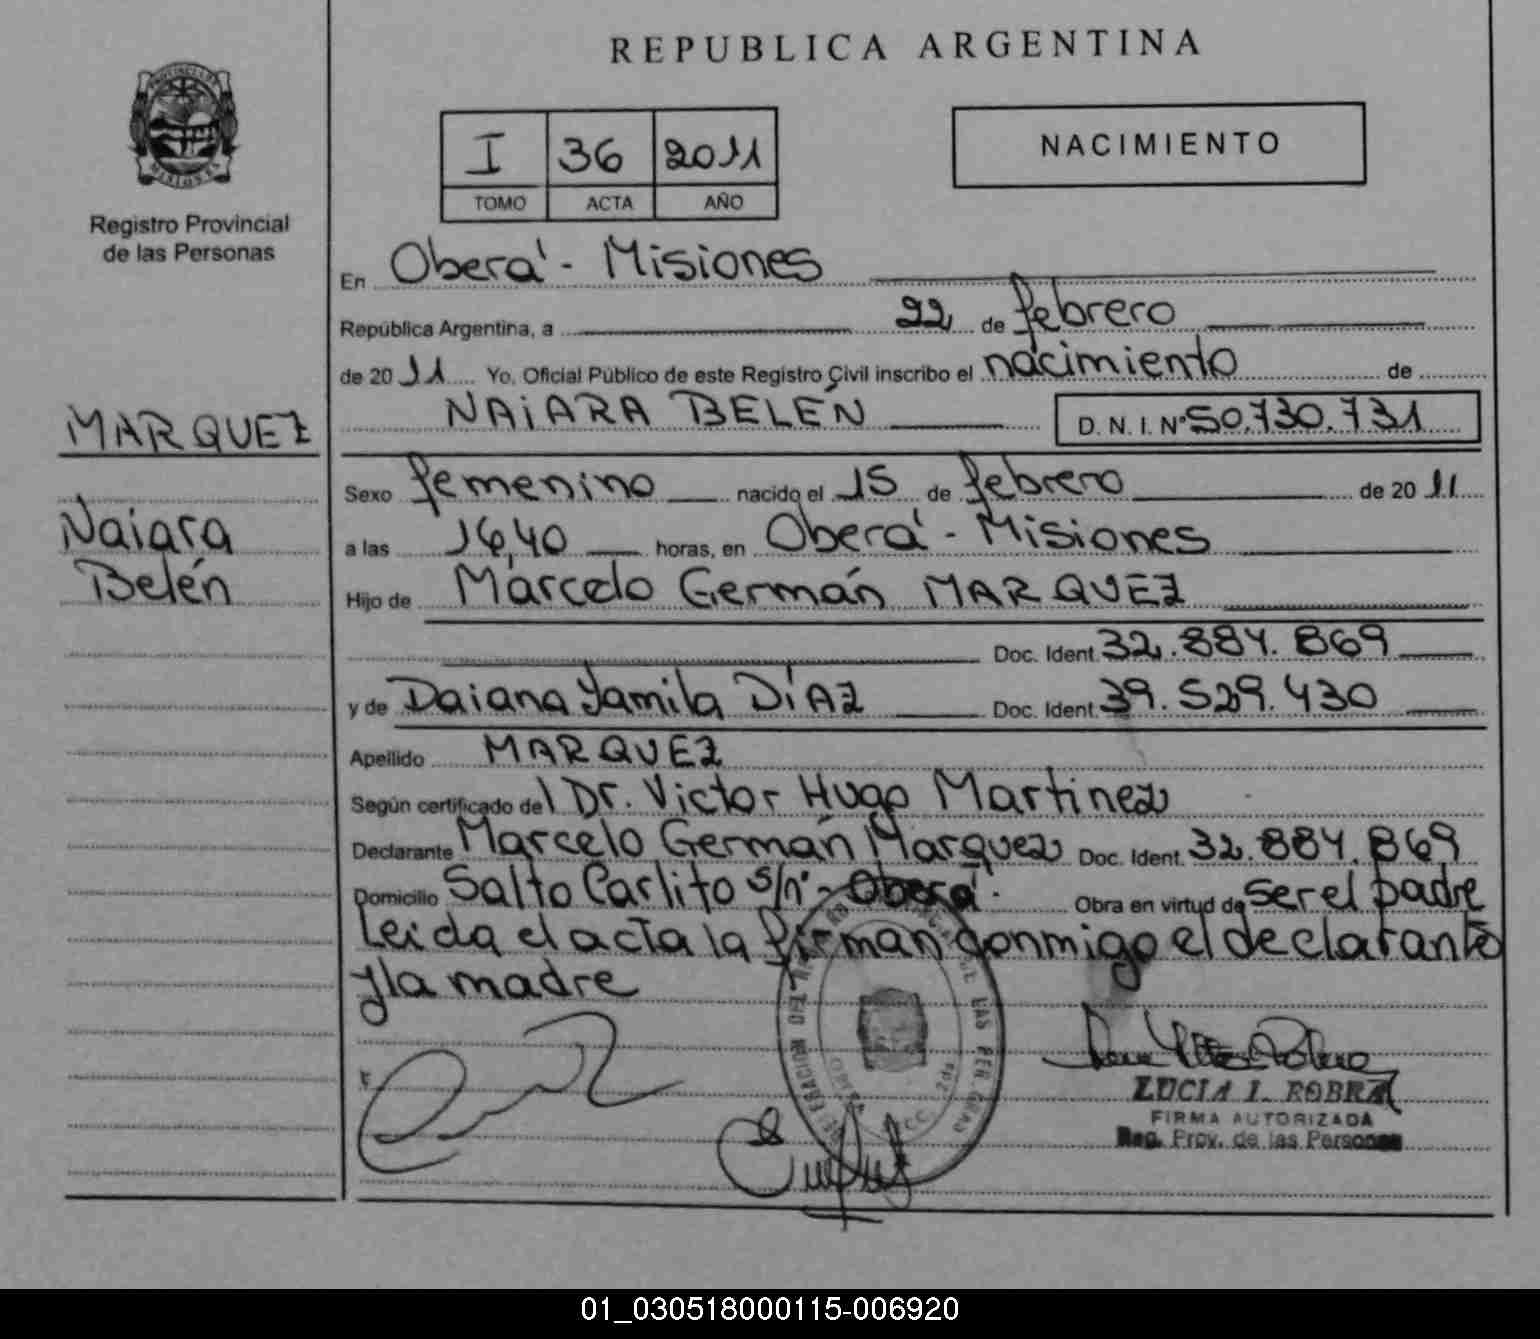 REPUBLICA ARGENTINA
PROVINCIA DE
MISIONES
Registro Provincial
de las Personas
I 36 2011
TOMO ACTA AÑO
NACIMIENTO
En Oberá - Misiones
República Argentina, a 22 de febrero
de 2011 Yo, Oficial Público de este Registro Civil inscribo el nacimiento de
NAiARA BELÉN D. N. I. Nº 50.730.731
MARQUEZ
Naiara
Belén
Sexo femenino nacido el 15 de febrero de 2011
a las 16,40 horas, en Oberá - Misiones
Hijo de Marcelo Germán MARQUEZ
Doc. Ident. 32.884.869
y de Daiana Yamila DíAZ Doc. Ident. 39.529.430
Apellido MARQUEZ
Según certificado del Dr. Victor Hugo Martinez
Declarante Marcelo Germán Marquez Doc. Ident. 32.884.869
Domicilio Salto Carlito s/nº - Oberá - Obra en virtud de ser el padre
Leida el acta la firman conmigo el declarante
y la madre
LUCIA I. ROBRA
FIRMA AUTORIZADA
Reg. Prov. de las Personas
01_030518000115-006920